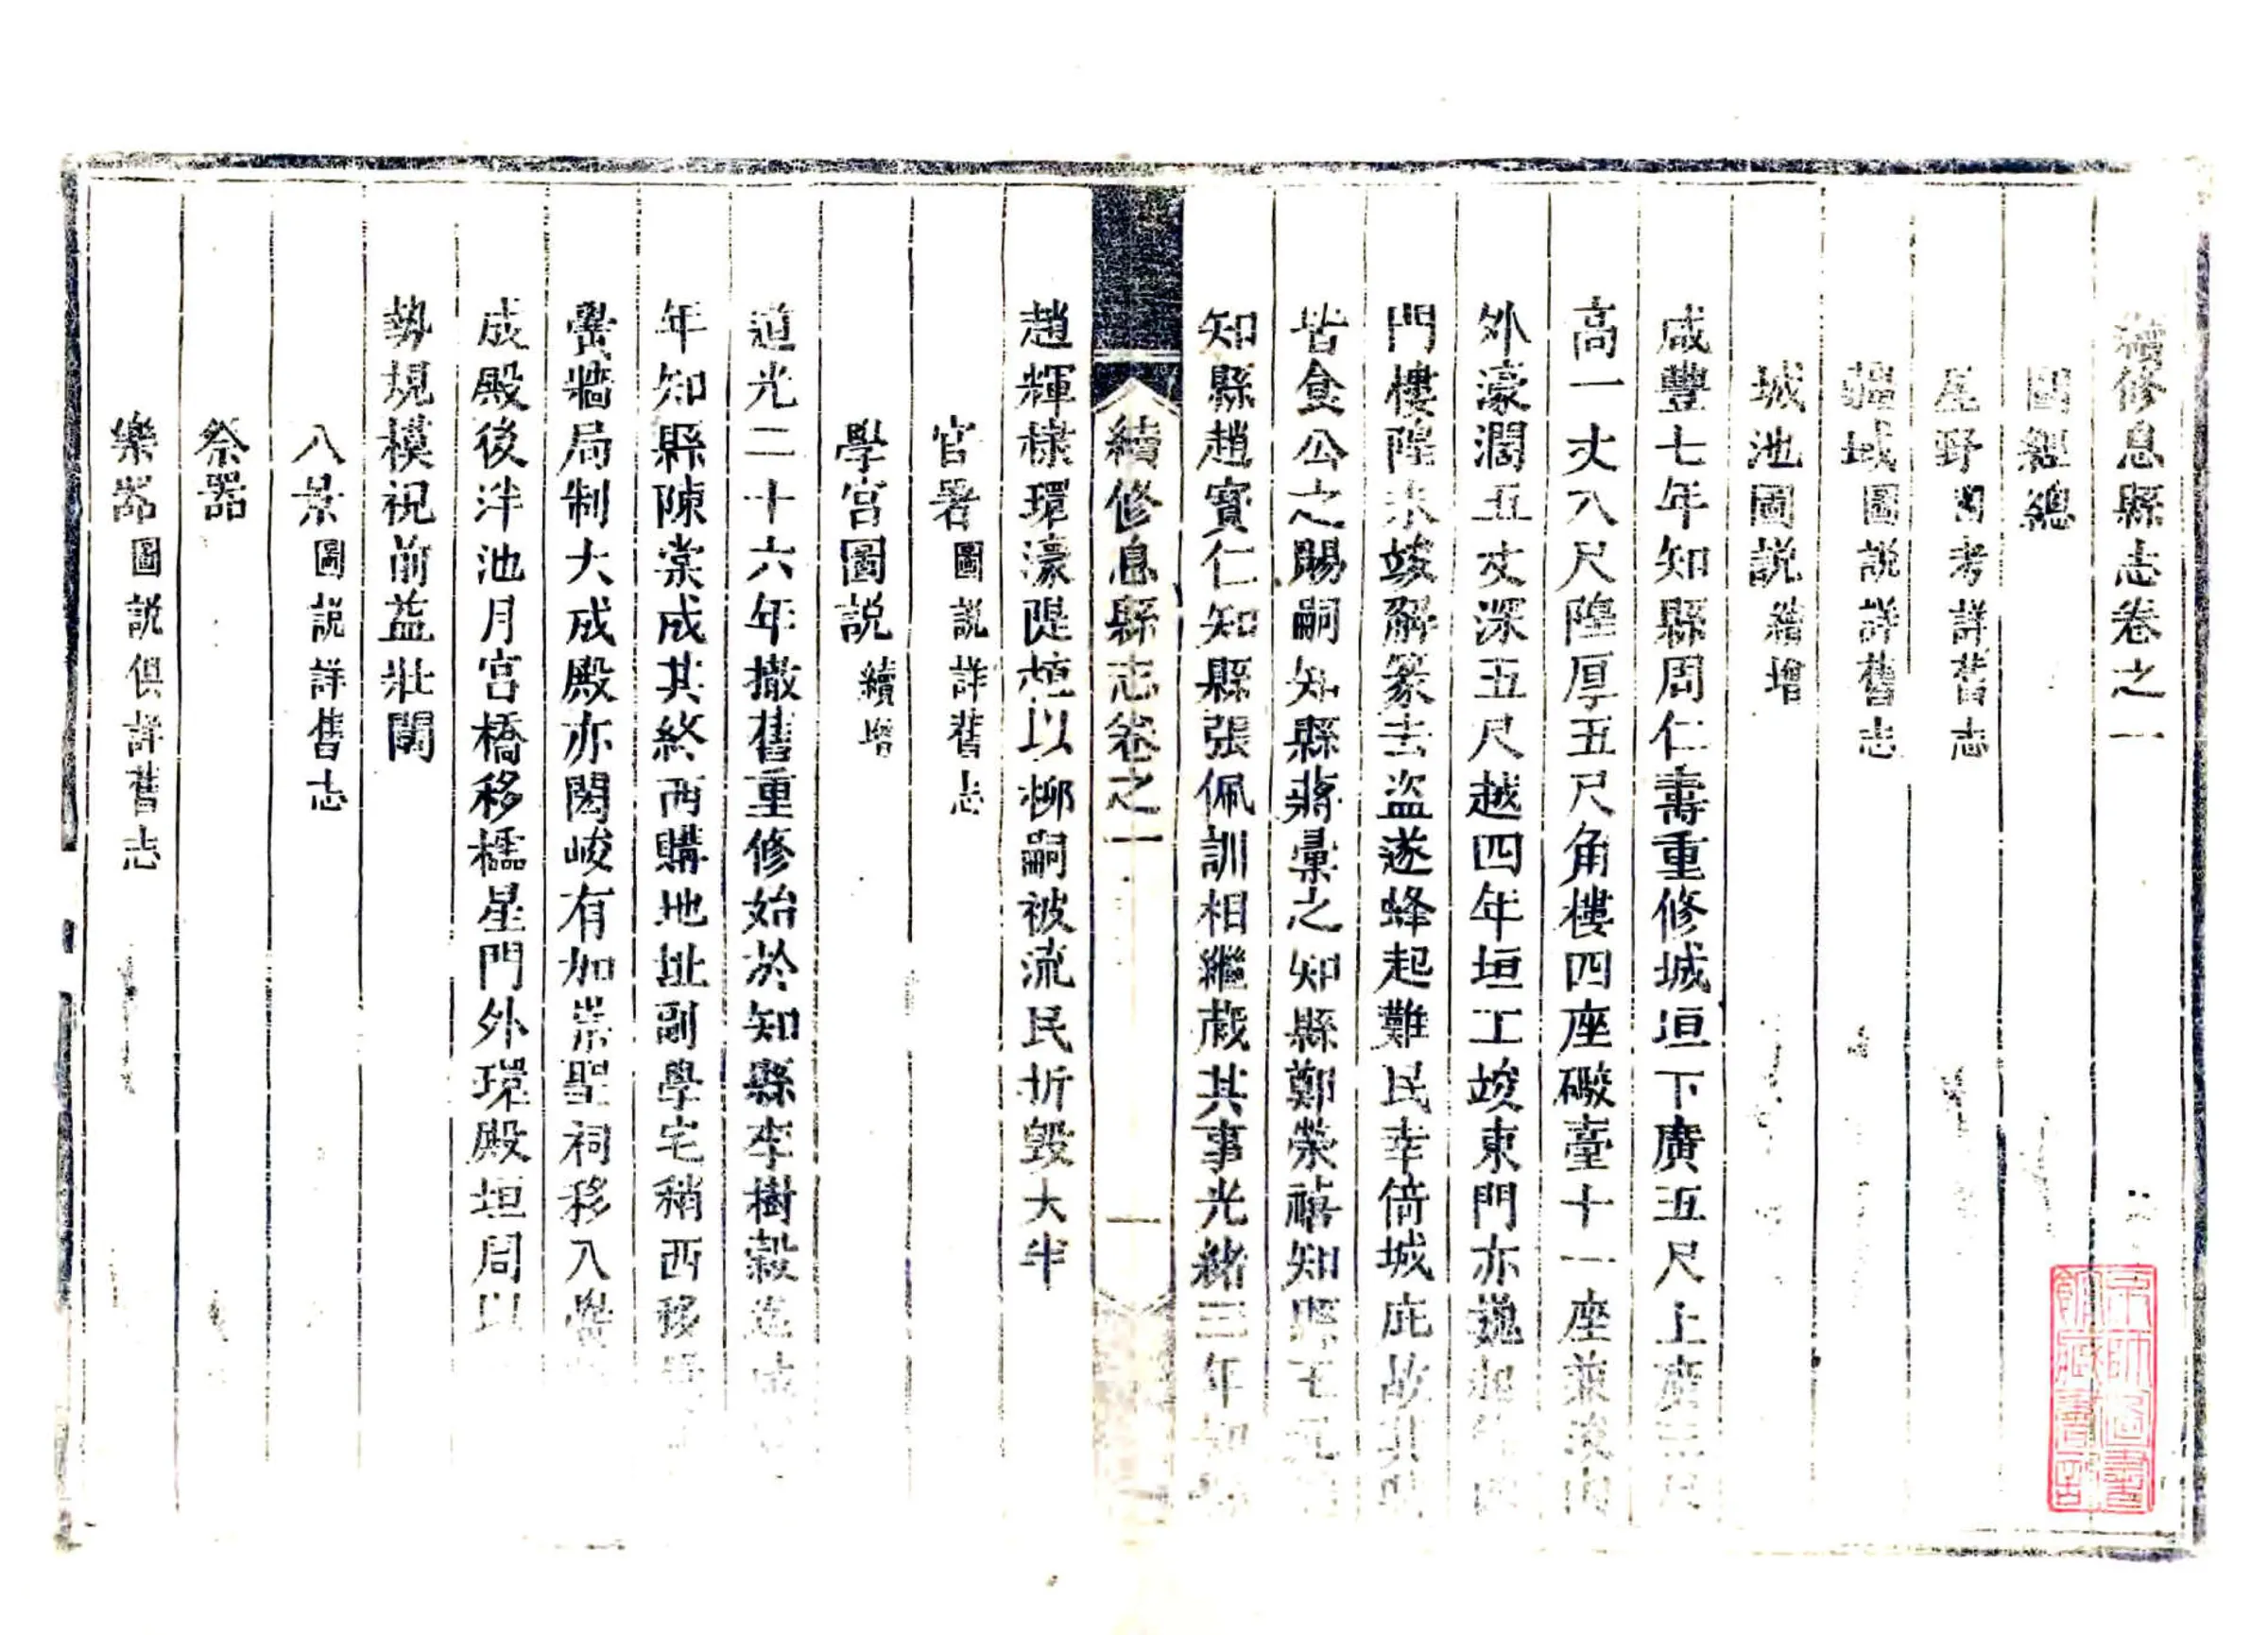 續修息縣志卷之一
圖經總
星野圖考詳舊志
疆域圖說詳舊志
城池圖説續增
咸豐七年知縣周仁壽重修城垣下廣五尺上廣三尺
高一丈八尺隍厚五尺角樓四座礮臺十一座兼浚内
外濠濶五丈深五尺越四年垣工竣東門亦巍
門樓隍未竣解篆去盜遂蜂起難民幸倚城庇故
皆食公之賜嗣知縣蔣彙之知縣鄭榮禧知縣
知縣趙寳仁知縣張佩訓相繼蕆其事光緒三年知縣
續修息縣志卷之一
一
趙輝棣環濠隄植以栁嗣被流民折毀大半
官署圖説詳舊志
學宮圖説續增
道光二十六年撤舊重修始於知縣李樹穀
年知縣陳棠成其終西購地址副學宅稍西移
黌牆局制大成殿亦閎峻有加崇聖祠移入
成殿後泮池月宮橋移櫺星門外環殿垣周以
勢規模視前益壯闊
八景圖説詳舊志
祭器
樂器圖説俱詳舊志
京師圖書館藏書記